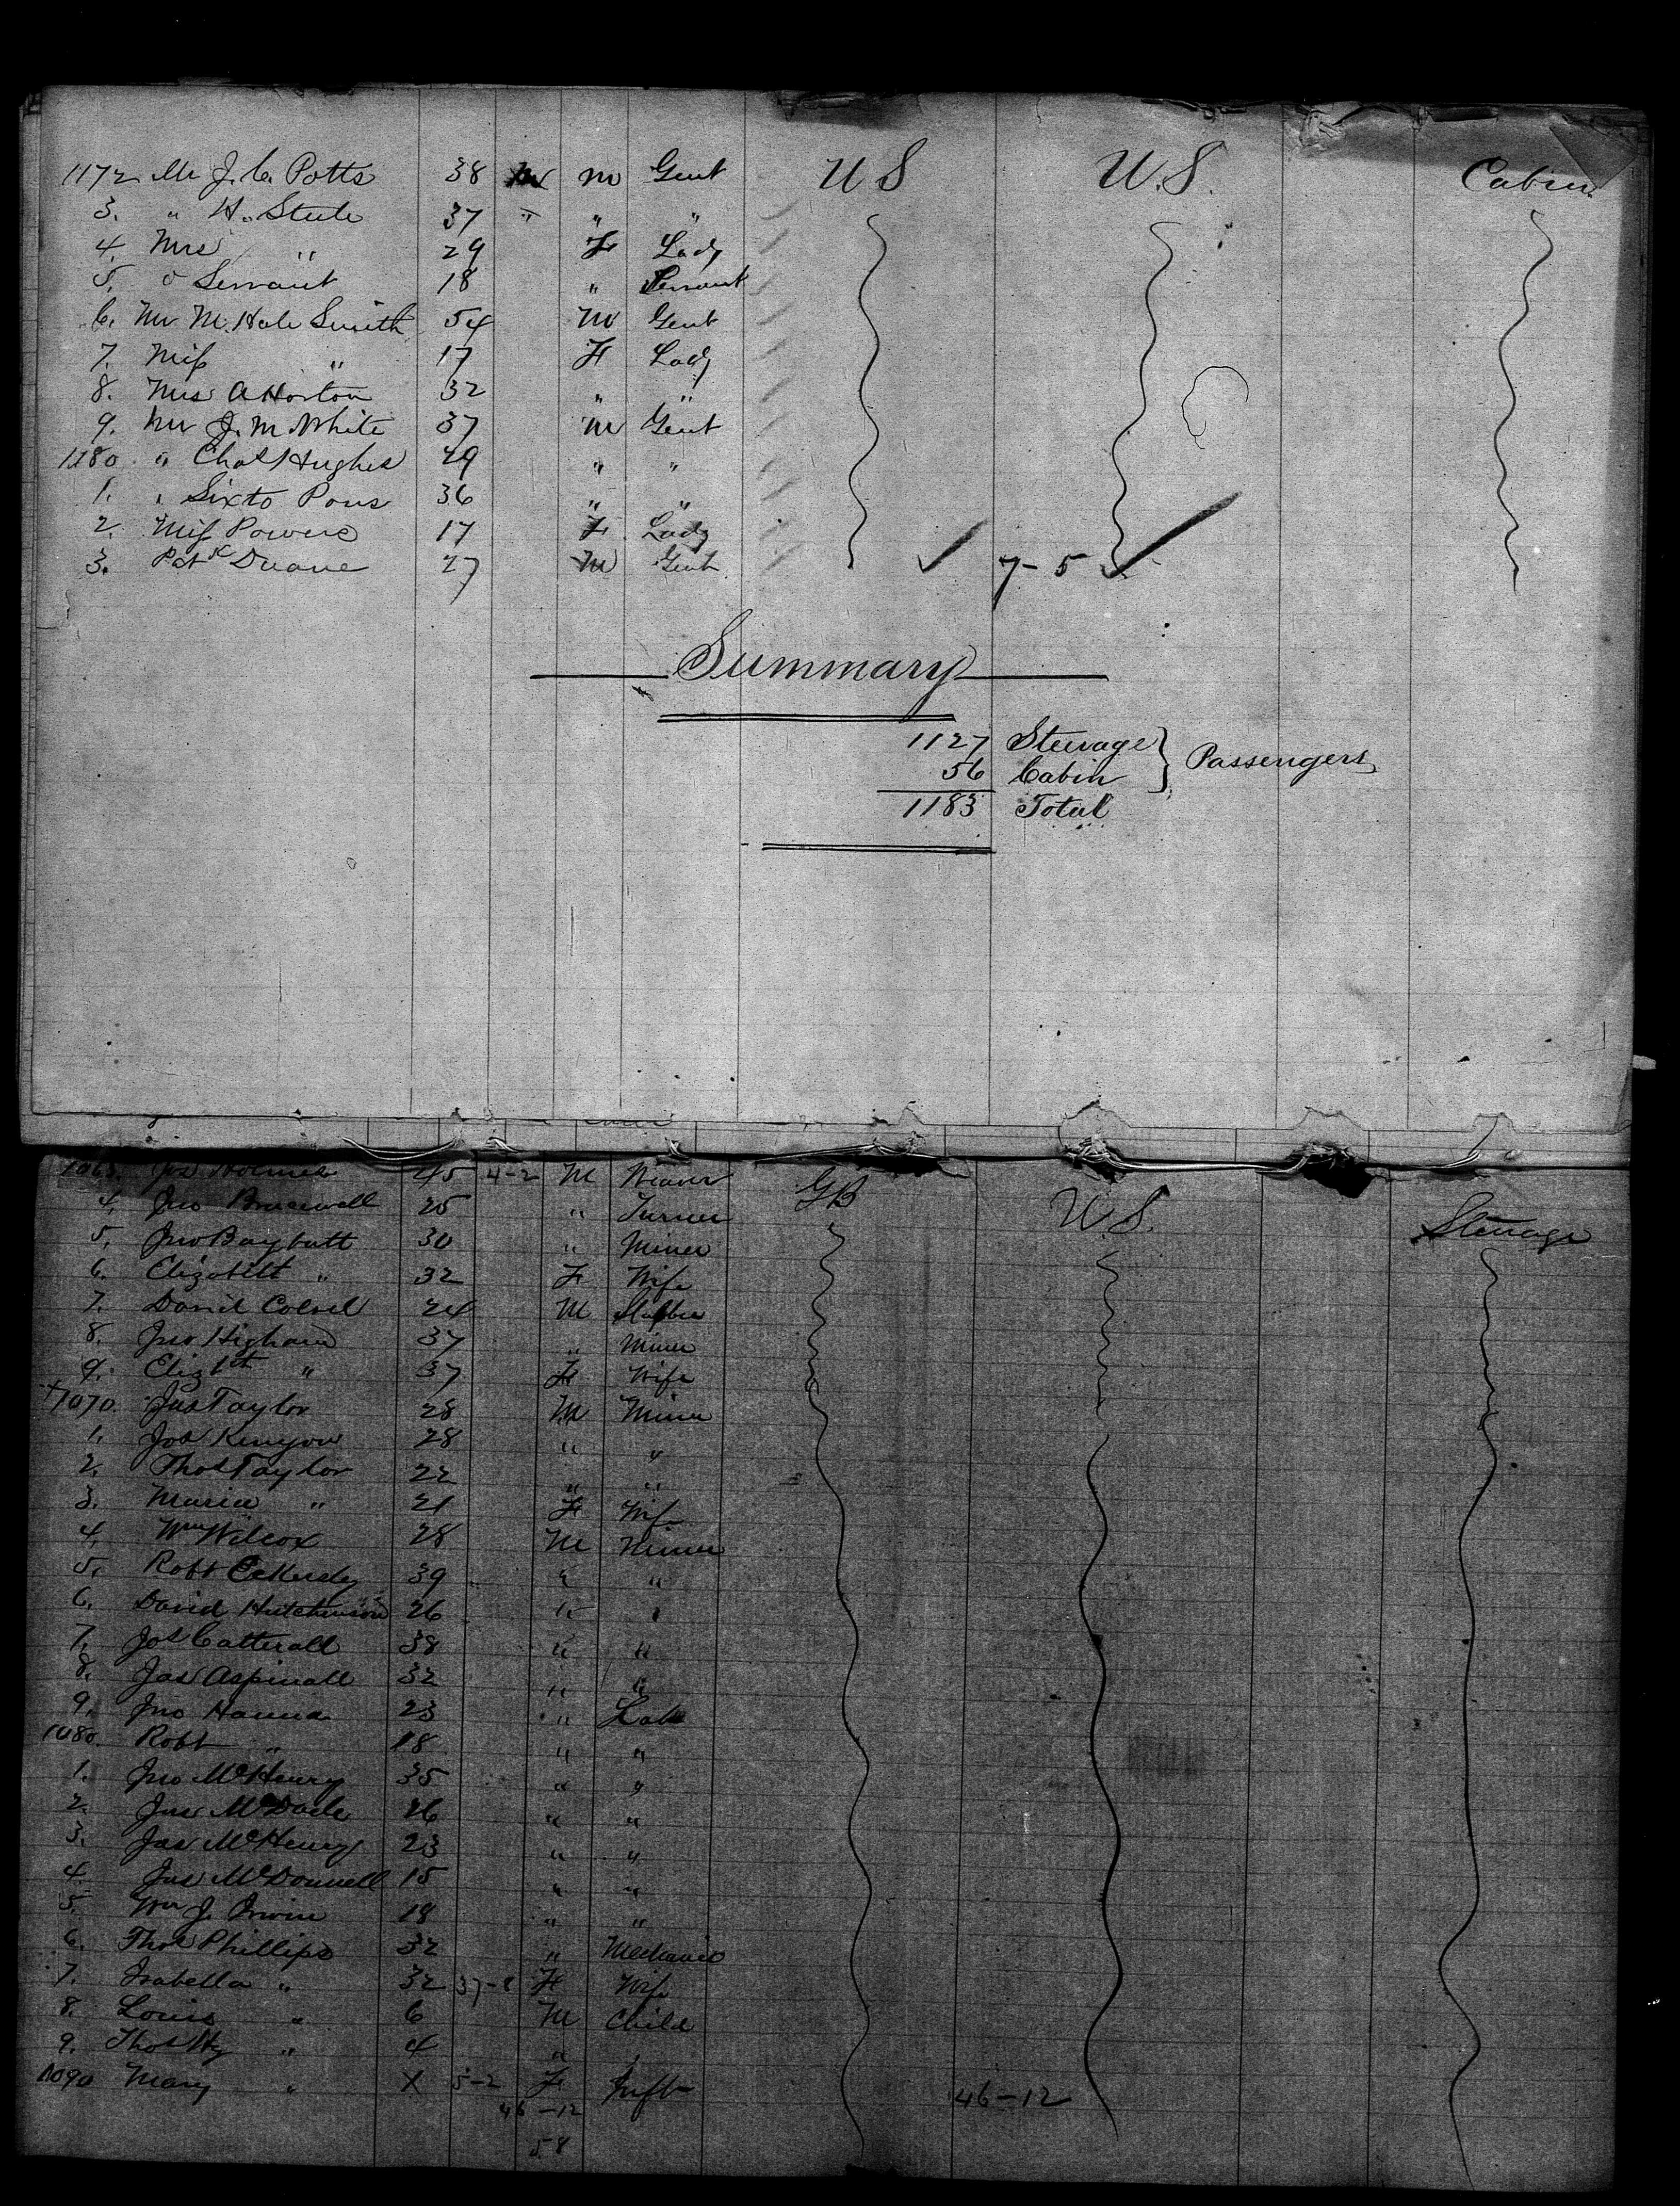 1172 Mr J. C. Potts 38 M Gent U S U.S. Cabin
3. " H. Steele 37 " " "
4. Mrs " 29 F Lady
5. " Servant 18 " Servant
6. Mr M. Hale Smith 54 M Gent
7. Miss " 17 F Lady
8. Mrs A Horton 32 " "
9. Mr J. M. White 37 M Gent
1180 " Chas Hughes 49 " "
1. " Sixto Pons 36 " "
2. Miss Powers 17 F Lady
3. Patk Duane 27 M Gent 7-5
Summary
1127 Steerage
56 Cabin Passengers
1183 Total
Jas Holmes 45 4-2 M Weaver GB U.S. Steerage
4. Jno Bracewell 25 " Turner
5. Jno Baybutt 30 " Miner
6. Elizabeth " 32 F Wife
7. David 24 M
8. Jno Higham 37 " Miner
9. Elizbth " 37 F Wife
1070. Jas Taylor 28 M Miner
1. Jos Kenyon 28 " "
2. Thos Taylor 22 " "
3. Maria " 21 F Wife
4. Wm Wilcox 28 M Miner
5. Robt Eckersley 39 " "
6. David Hutchinson 26 " "
7. Jos Catterall 38 " "
8. Jas Aspinall 32 " "
9. Jno Hanna 23 " Lab
1080. Robt " 18 " "
1. Jno McHenry 35 " "
2. Jas McDade 26 " "
3. Jas McHenry 23 " "
4. Jas McDonnell 15 " "
5. Wm J. Irwin 18 " "
6. Thos Phillips 32 " Mechanic
7. Isabella " 32 37-8 F Wife
8. Louis " 6 M Child
9. Thos Hy " 4 "
1090 Mary " X 5-2 F Inft
46-12 46-12
58